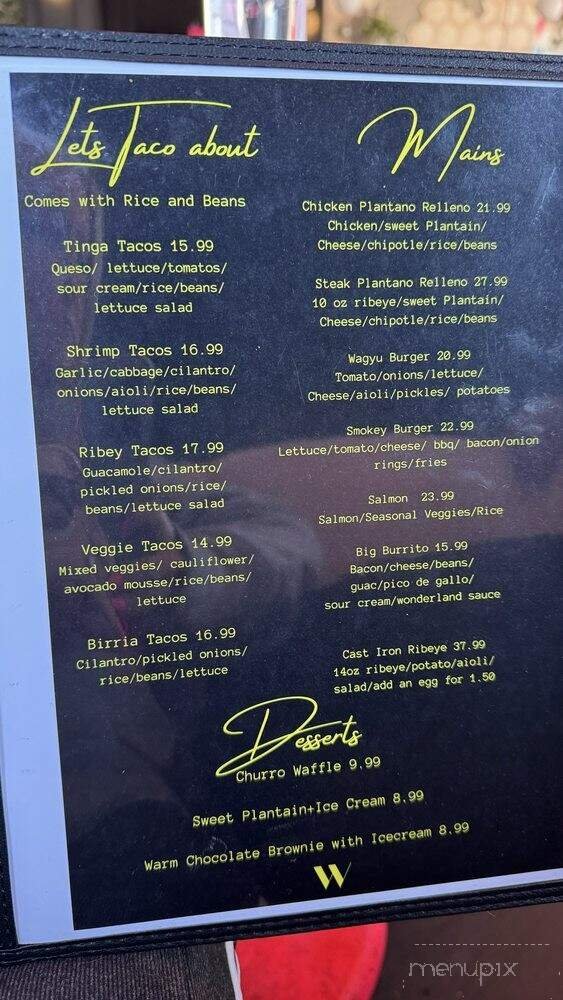 Lets Taco about
Comes with Rice and Beans
Tinga Tacos 15.99
Queso/ lettuce/tomatos/
sour cream/rice/beans/
lettuce salad
Shrimp Tacos 16.99
Garlic/cabbage/cilantro/
onions/aioli/rice/beans/
lettuce salad
Ribey Tacos 17.99
Guacamole/cilantro/
pickled onions/rice/
beans/lettuce salad
Veggie Tacos 14.99
Mixed veggies/ cauliflower/
avocado mousse/rice/beans/
lettuce
Birria Tacos 16.99
Cilantro/pickled onions/
rice/beans/lettuce
Mains
Chicken Plantano Relleno 21.99
Chicken/sweet Plantain/
Cheese/chipotle/rice/beans
Steak Plantano Relleno 27.99
10 oz ribeye/sweet Plantain/
Cheese/chipotle/rice/beans
Wagyu Burger 20.99
Tomato/onions/lettuce/
Cheese/aioli/pickles/ potatoes
Smokey Burger 22.99
Lettuce/tomato/cheese/ bbq/ bacon/onion
rings/fries
Salmon 23.99
Salmon/Seasonal Veggies/Rice
Big Burrito 15.99
Bacon/cheese/beans/
guac/pico de gallo/
sour cream/wonderland sauce
Cast Iron Ribeye 37.99
14oz ribeye/potato/aioli/
salad/add an egg for 1.50
Desserts
Churro Waffle 9.99
Sweet Plantain+Ice Cream 8.99
Warm Chocolate Brownie with Icecream 8.99
W
menupix